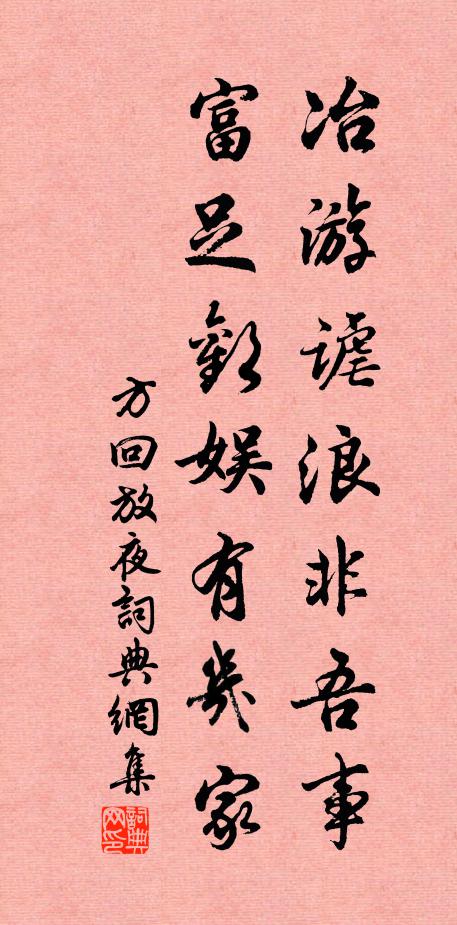 冶游謔浪非吾事
富足歡娛有幾家
方回放夜詞典網集
詞典网印